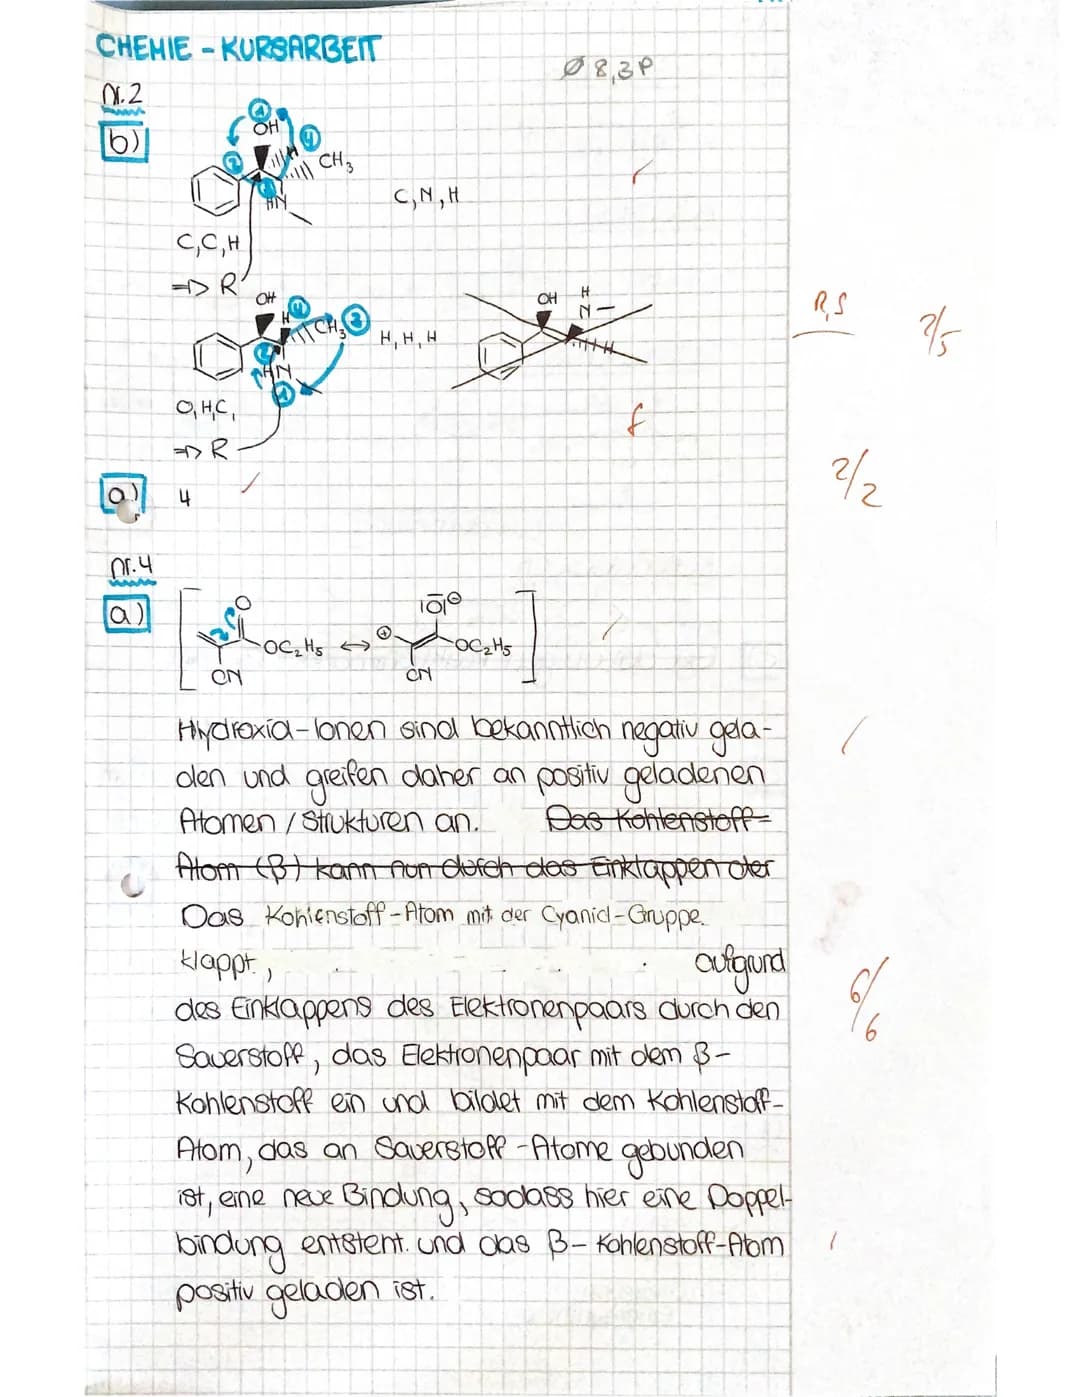 CHEMIE - KURSARBEIT
Ø 8,3P
Nr. 2
b)
1
OH
4
2
H
CH3
3
HN
C, N, H
C, C, H
=> R
OH
4
H
CH3
3
H, H, H
2
HN
1
O, H, C,
=> R
OH
H
N
H
R,S
2/5
f
a)
4
2/2
Nr. 4
a)
O
OC2H5
CN
↔
|O|⊖
⊕
OC2H5
CN
Hydroxid-Ionen sind bekanntlich negativ gela-
den und greifen daher an positiv geladenen
Atomen / Strukturen an. Das Kohlenstoff-
Atom (β) kann nun durch das Einklappen der
Das Kohlenstoff-Atom mit der Cyanid-Gruppe
klappt, aufgrund
des Einklappens des Elektronenpaars durch den
6/6
Sauerstoff, das Elektronenpaar mit dem β-
Kohlenstoff ein und bildet mit dem Kohlenstoff-
Atom, das an Sauerstoff-Atome gebunden
ist, eine neue Bindung, sodass hier eine Doppel-
bindung entsteht. und das β-Kohlenstoff-Atom
positiv geladen ist.